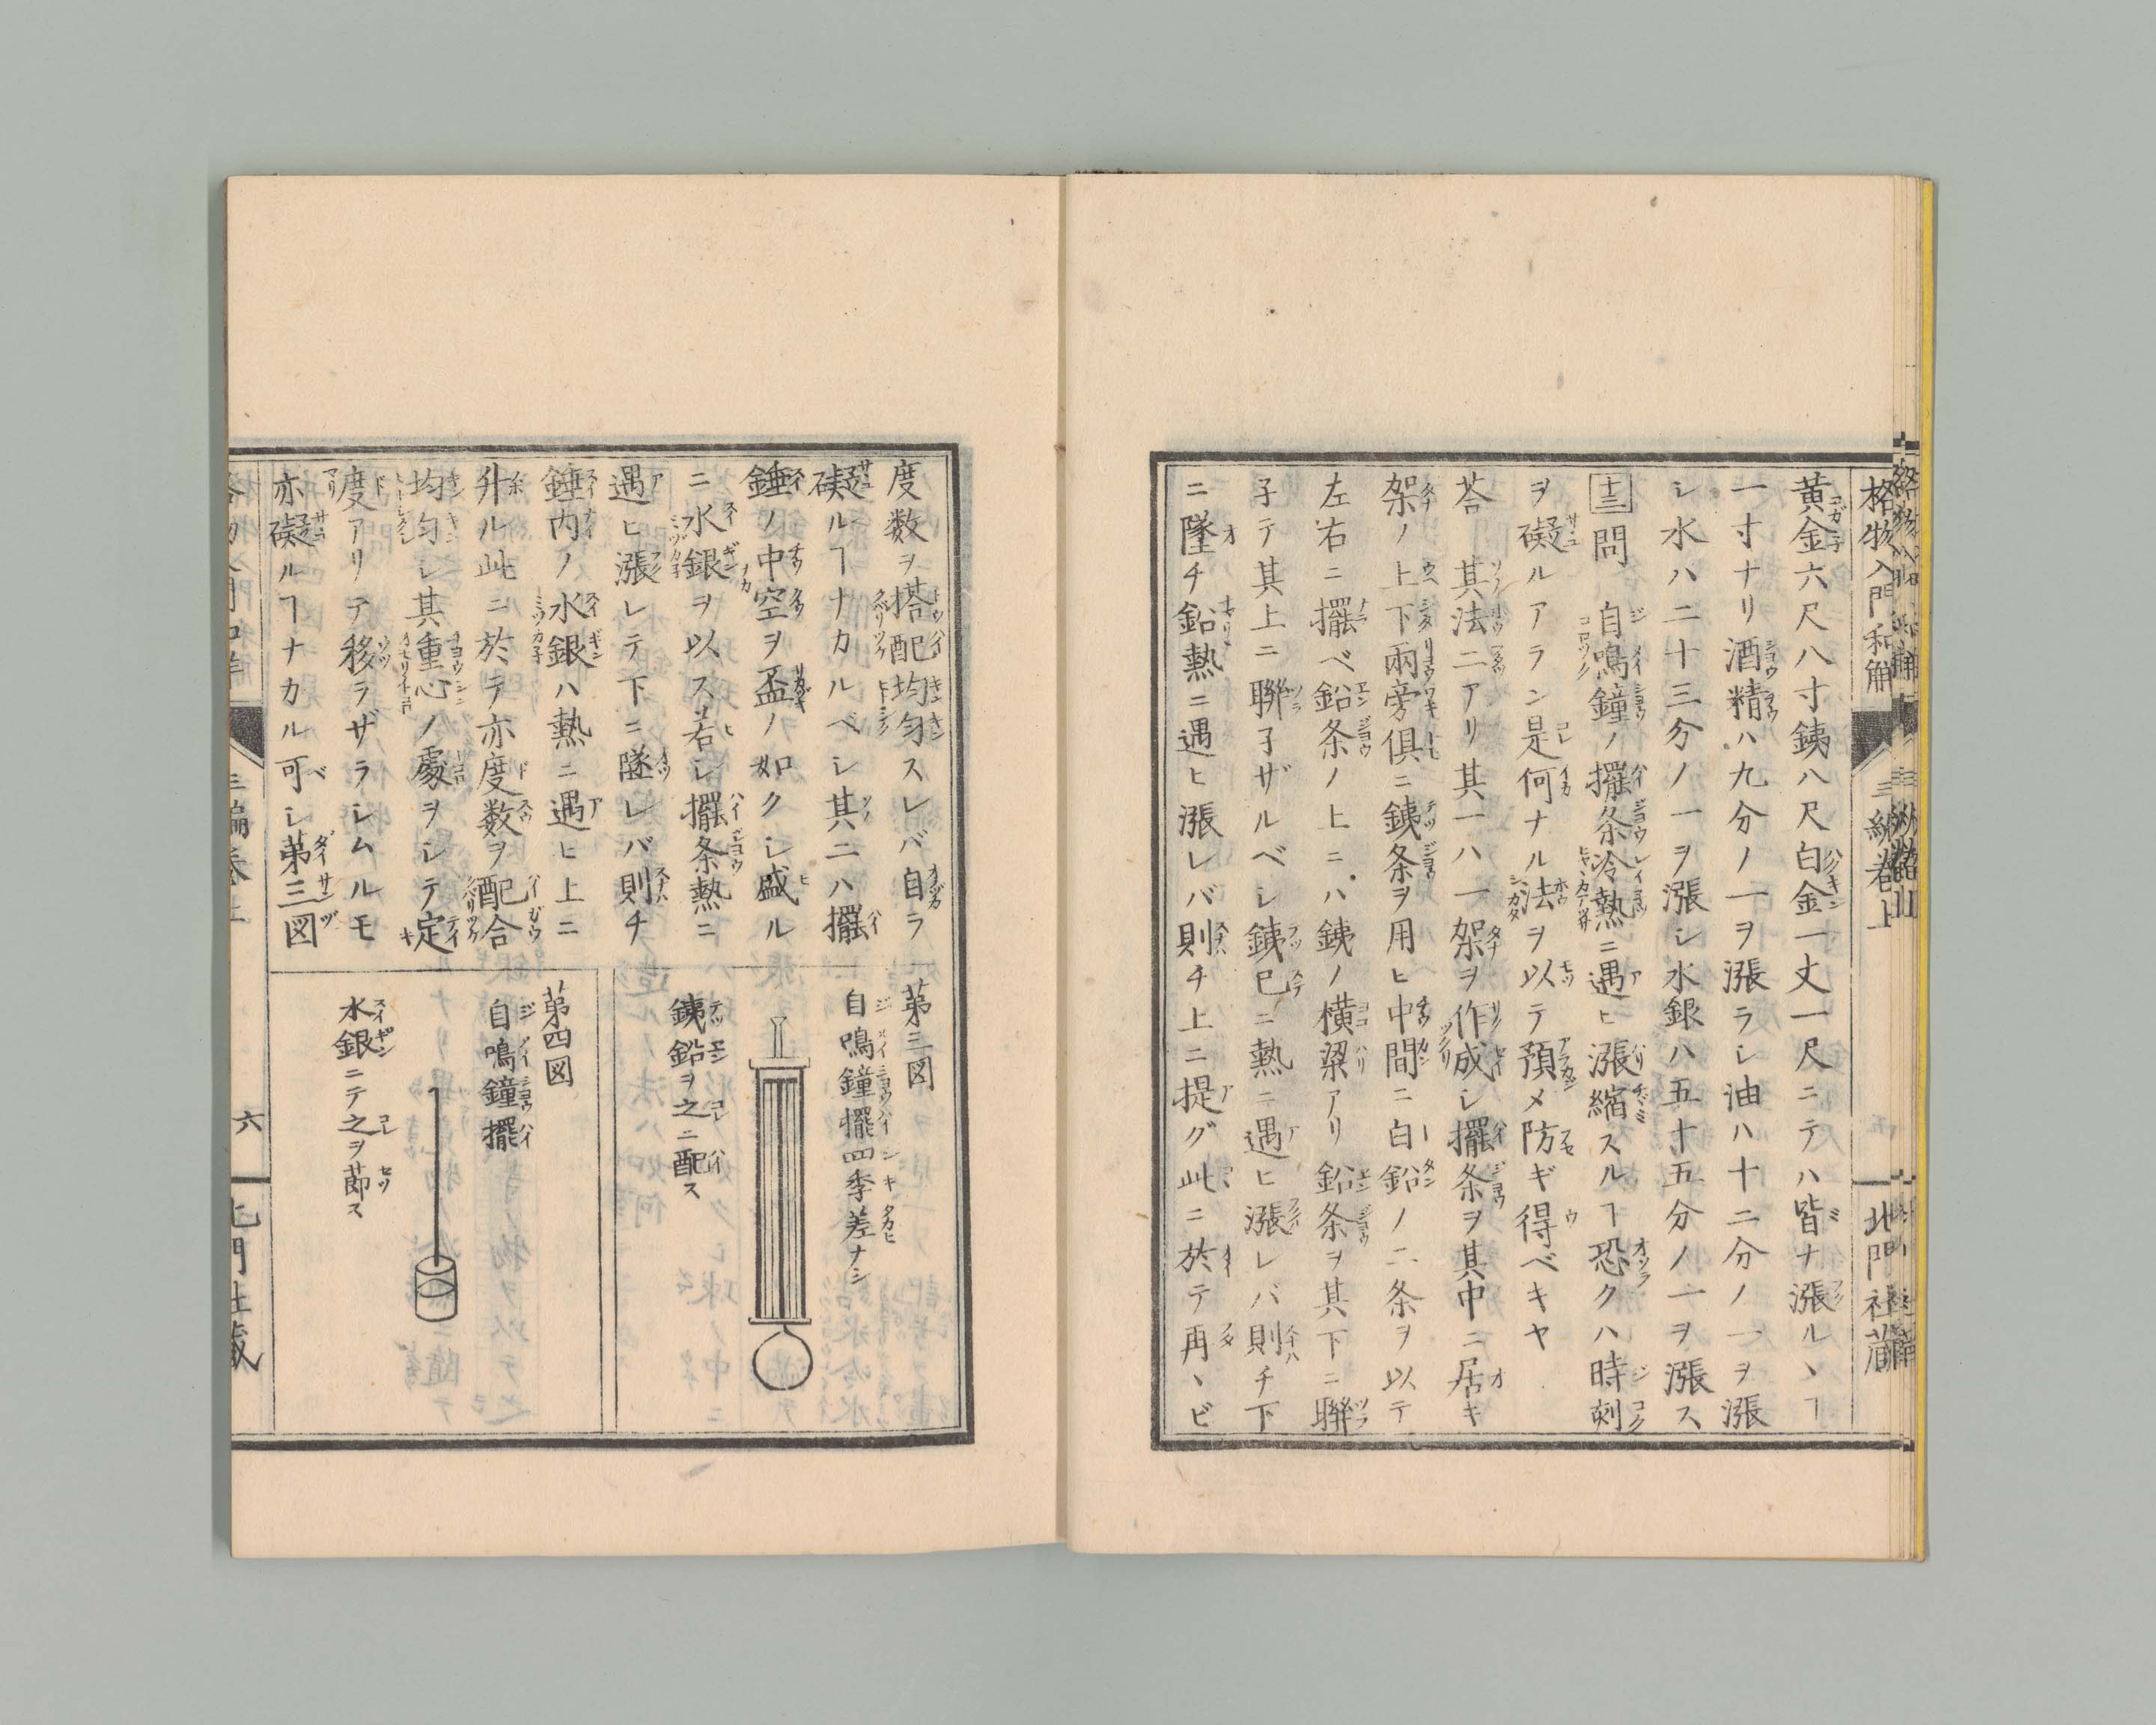 格物入門和解
三編巻上
北門社蔵
黄金六尺八寸銕八尺白金一丈一尺ニテハ皆ナ漲ルヽヿ
一寸ナリ酒精ハ九分ノ一ヲ漲ラシ油ハ十二分ノ一ヲ漲
シ水ハ二十三分ノ一ヲ漲シ水銀ハ五十五分ノ一ヲ漲ス
十二問 自鳴鐘ノ擺条冷熱ニ遇ヒ漲縮スルヿ恐クハ時刻
ヲ礙ルアラン是何ナル法ヲ以テ預メ防ギ得ベキヤ
荅 其法二アリ其一ハ一架ヲ作成シ擺条ヲ其中ニ居キ
架ノ上下兩旁俱ニ銕条ヲ用ヒ中間ニ白鉛ノ二条ヲ以テ
左右ニ擺ベ鉛条ノ上ニハ銕ノ横梁アリ鉛条ヲ其下ニ聯
子テ其上ニ聯子ザルベシ銕已ニ熱ニ遇ヒ漲レバ則チ下
ニ墜チ鉛熱ニ遇ヒ漲レバ則チ上ニ提グ此ニ於テ再ヽビ
度数ヲ搭配均匀スレバ自ラ
礙ルヿナカルベシ其二ハ擺
錘ノ中空ヲ盃ノ如クシ盛ル
ニ水銀ヲ以ス若シ擺条熱ニ
遇ヒ漲レテ下ニ隧レバ則チ
錘内ノ水銀ハ熱ニ遇ヒ上ニ
升ル此ニ於テ亦度数ヲ配合
均匀シ其重心ノ處ヲシテ定
度アリテ移ラザラシムルモ
亦礙ルヿナカル可シ第三図
第三図
自鳴鐘擺四季差ナシ
銕鉛ヲ之ニ配ス
第四図
自鳴鐘擺
水銀ニテ之ヲ節ス
三編巻上
六
北門社蔵